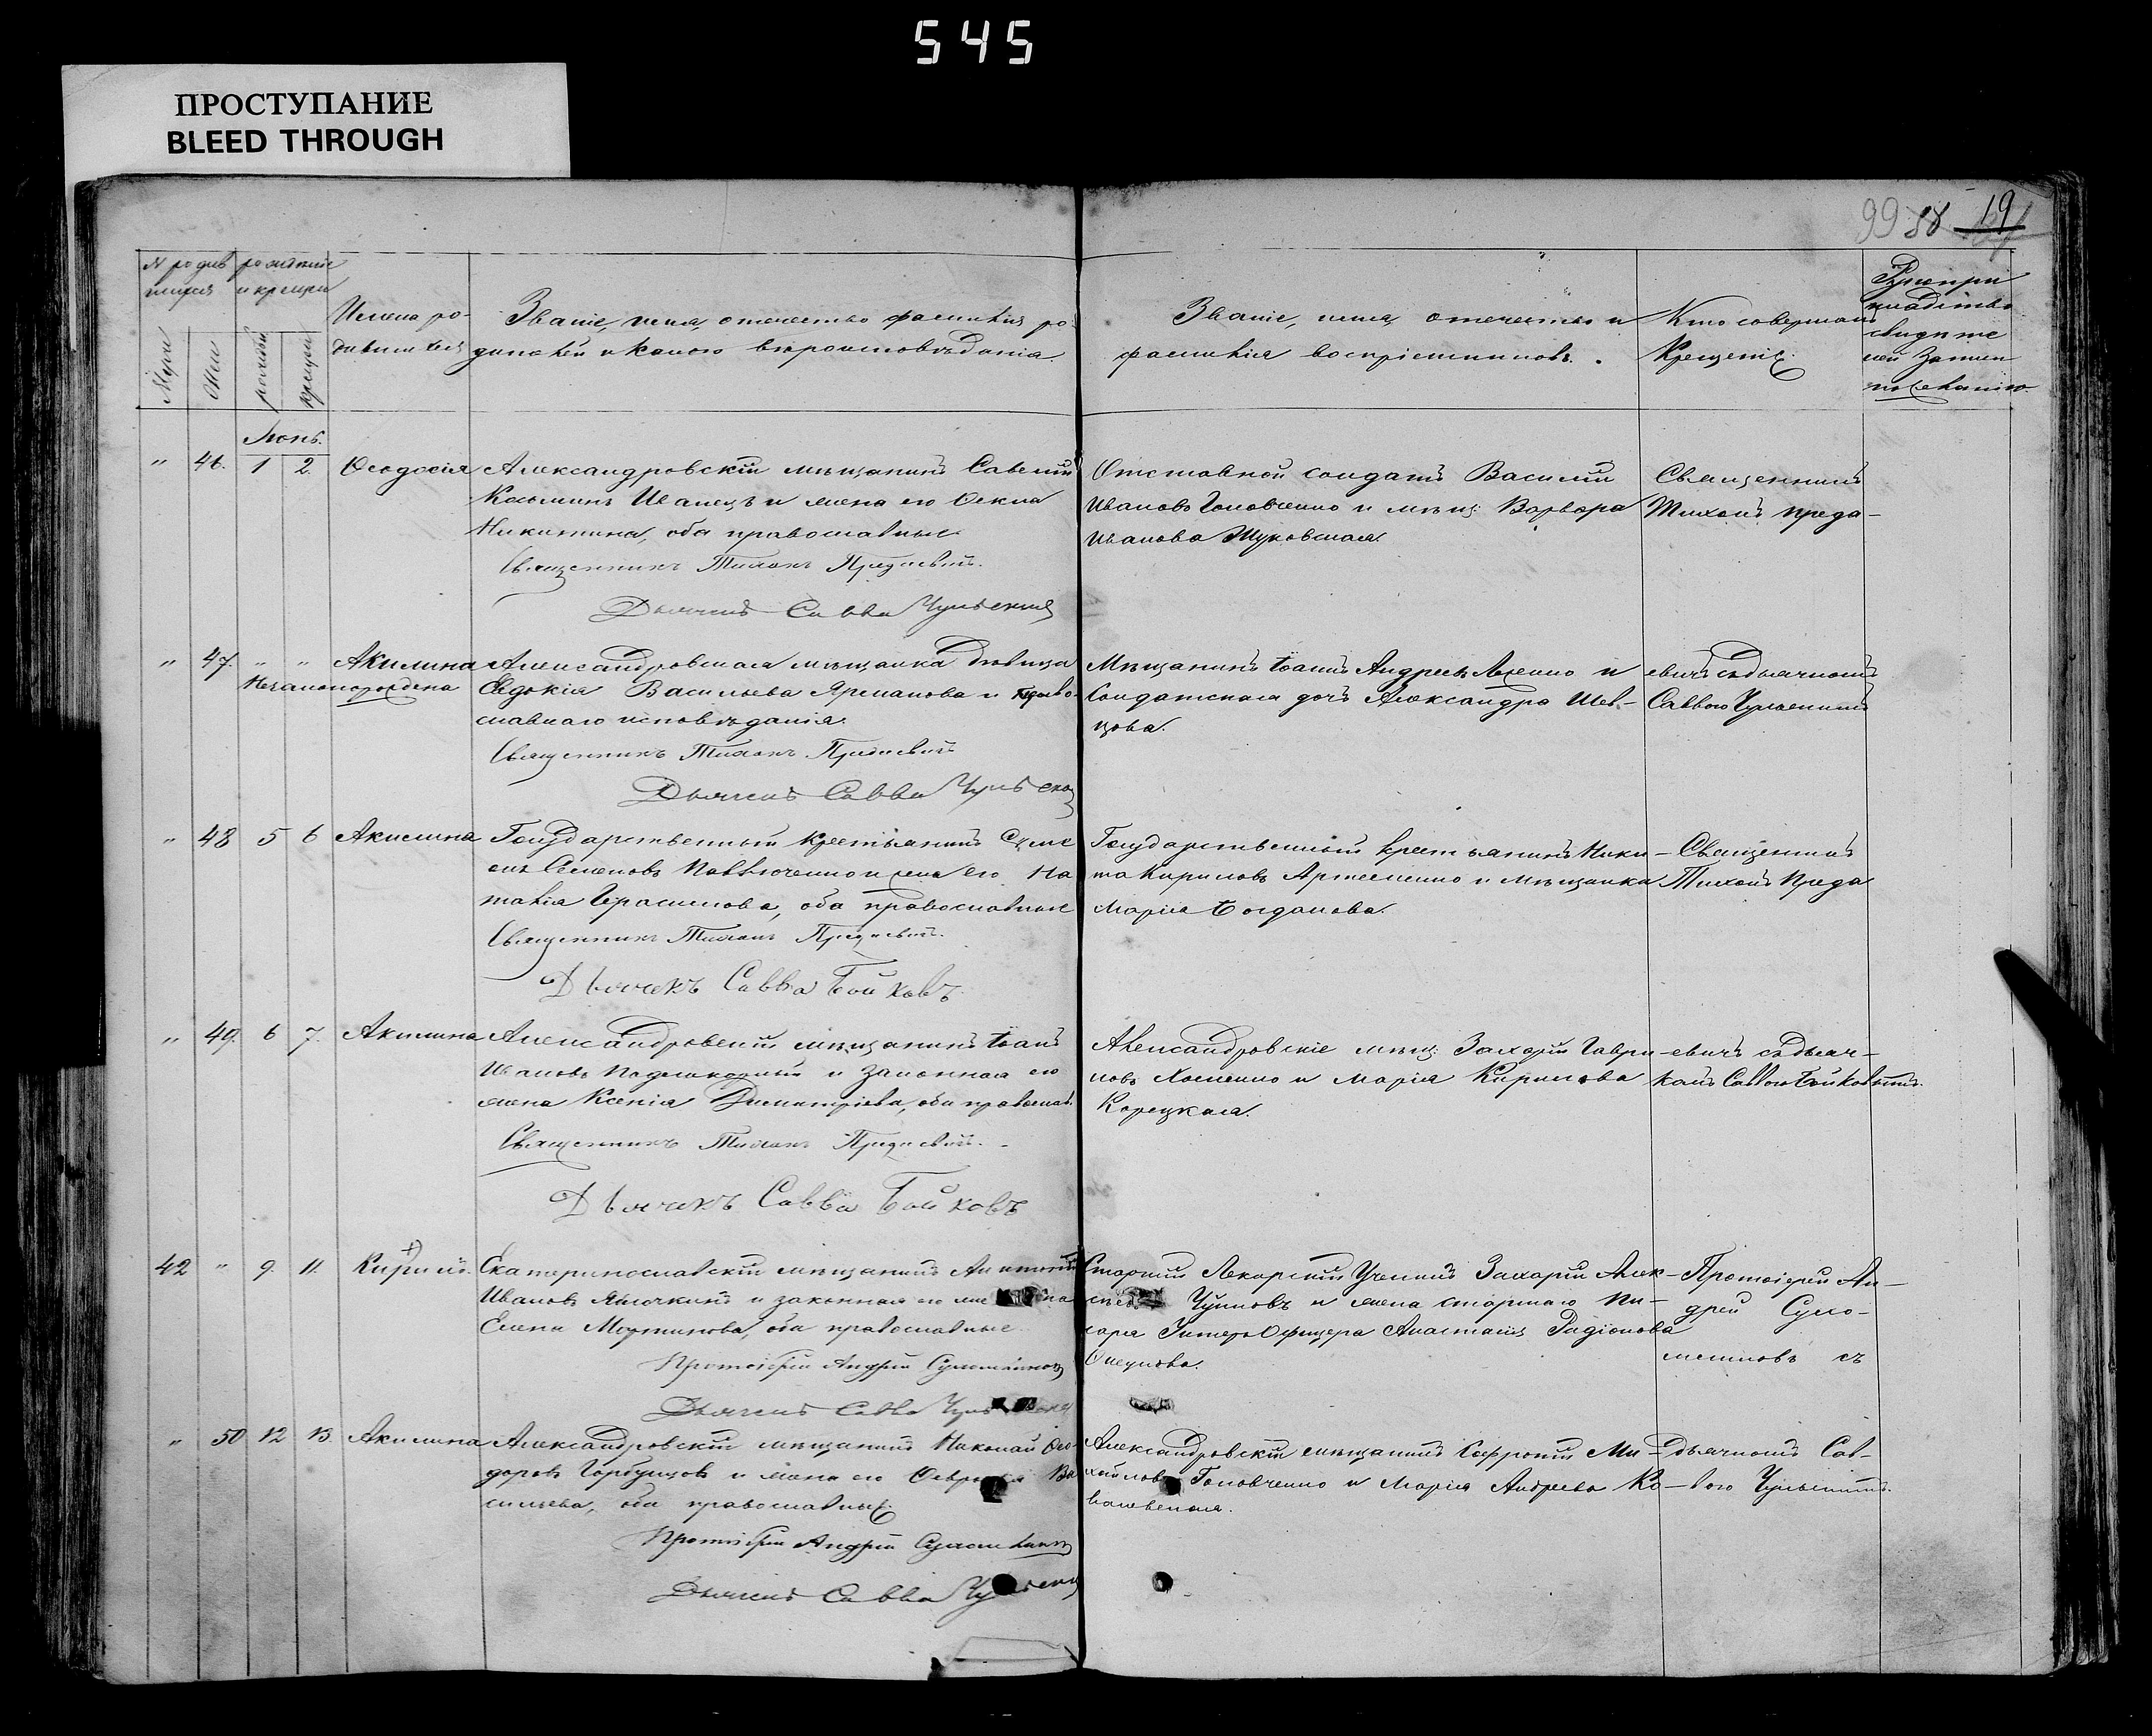 545
ПРОСТУПАНИЕ
BLEED THROUGH
99 88 19
Имена ро-
Званіе, имя, отечество фамилія ро-
дителей и какого вѣроисповѣданія.
Званіе, имя, отечество и
фамилія воспріемниковъ.
Кто совершалъ
Крещеніе.
Рукопри
кладство
свидѣте
лей записи
по желанію.
Мужи
Жен
рожден
крещен
Іюнь.
" 46. 1 2. Ѳеодосія Александровскій мѣщанинъ Савелій
Косьминъ Иванецъ и жена его Ѳекла
Никитина, оба православные.
Священникъ Тихонъ Предаевичъ.
Дьячекъ Савва Чульскій
Отставной солдатъ Василій
Ивановъ Головченко и мѣщ. Варвара
Иванова Жуковская.
Священникъ
Тихонъ Преда-
" 47. " " Акилина Александровская мѣщанка дѣвица
Незаконорождена Евдокія Васильева Ярманова и право-
славнаго исповѣданія.
Священникъ Тихонъ Предаевичъ
Дьячекъ Савва Чульскій
Мѣщанинъ Іоаннъ Андреевъ и
Солдатская дочь Александра Шев-
цова.
евичъ съ дьячкомъ
Саввою Чульскимъ
" 48 5 6 Акилина Государственный крестьянинъ Симе
онъ Семеновъ Павлюченко и жена его На
талія Герасимова, оба православные
Священникъ Тихонъ Предаевичъ.
Дьячекъ Савва Бойковъ.
Государственный крестьянинъ Ники-
та Кириловъ Артеменко и мѣщанка
Марія Богданова.
Священникъ
Тихонъ Преда
" 49. 6 7. Акилина Александровскій мѣщанинъ Іоаннъ
Ивановъ и законная его
жена Ксенія Димитріева, оба православ.
Священникъ Тихонъ Предаевичъ.
Дьячекъ Савва Бойковъ
Александровскіе мѣщ. Захарій Гаври-
ловъ Хоменко и Марія Кирилова
Корецкая.
евичъ съ дьяч-
комъ Саввою Бойковымъ.
42 " 9. 11. Кирилъ. Екатеринославскій мѣщанинъ Антоній
Ивановъ Яичкинъ и законная его жена
Елена Мартинова, оба православные.
Протоіерей Андрей Сухомлиновъ
Дьячекъ Савва
Старшій Лекарскій Ученикъ Захарій Алек-
Чуйковъ и жена старшаго Пи-
саря Унтеръ Офицера Анастасія Радіонова
Протоіерей Ан-
дрей Сухо-
млиновъ съ
" 50 12 13. Акилина Александровскій мѣщанинъ Николай Ѳео-
доровъ Горбунцовъ и жена его Ва
сильева, оба православные.
Протоіерей Андрей Сухомлиновъ
Дьячекъ Савва
Александровскій мѣщанинъ Софроній Ми-
хайловъ Головченко и Марія Андреева Ко-
валевская.
дьячкомъ Сав-
вою Чульскимъ.